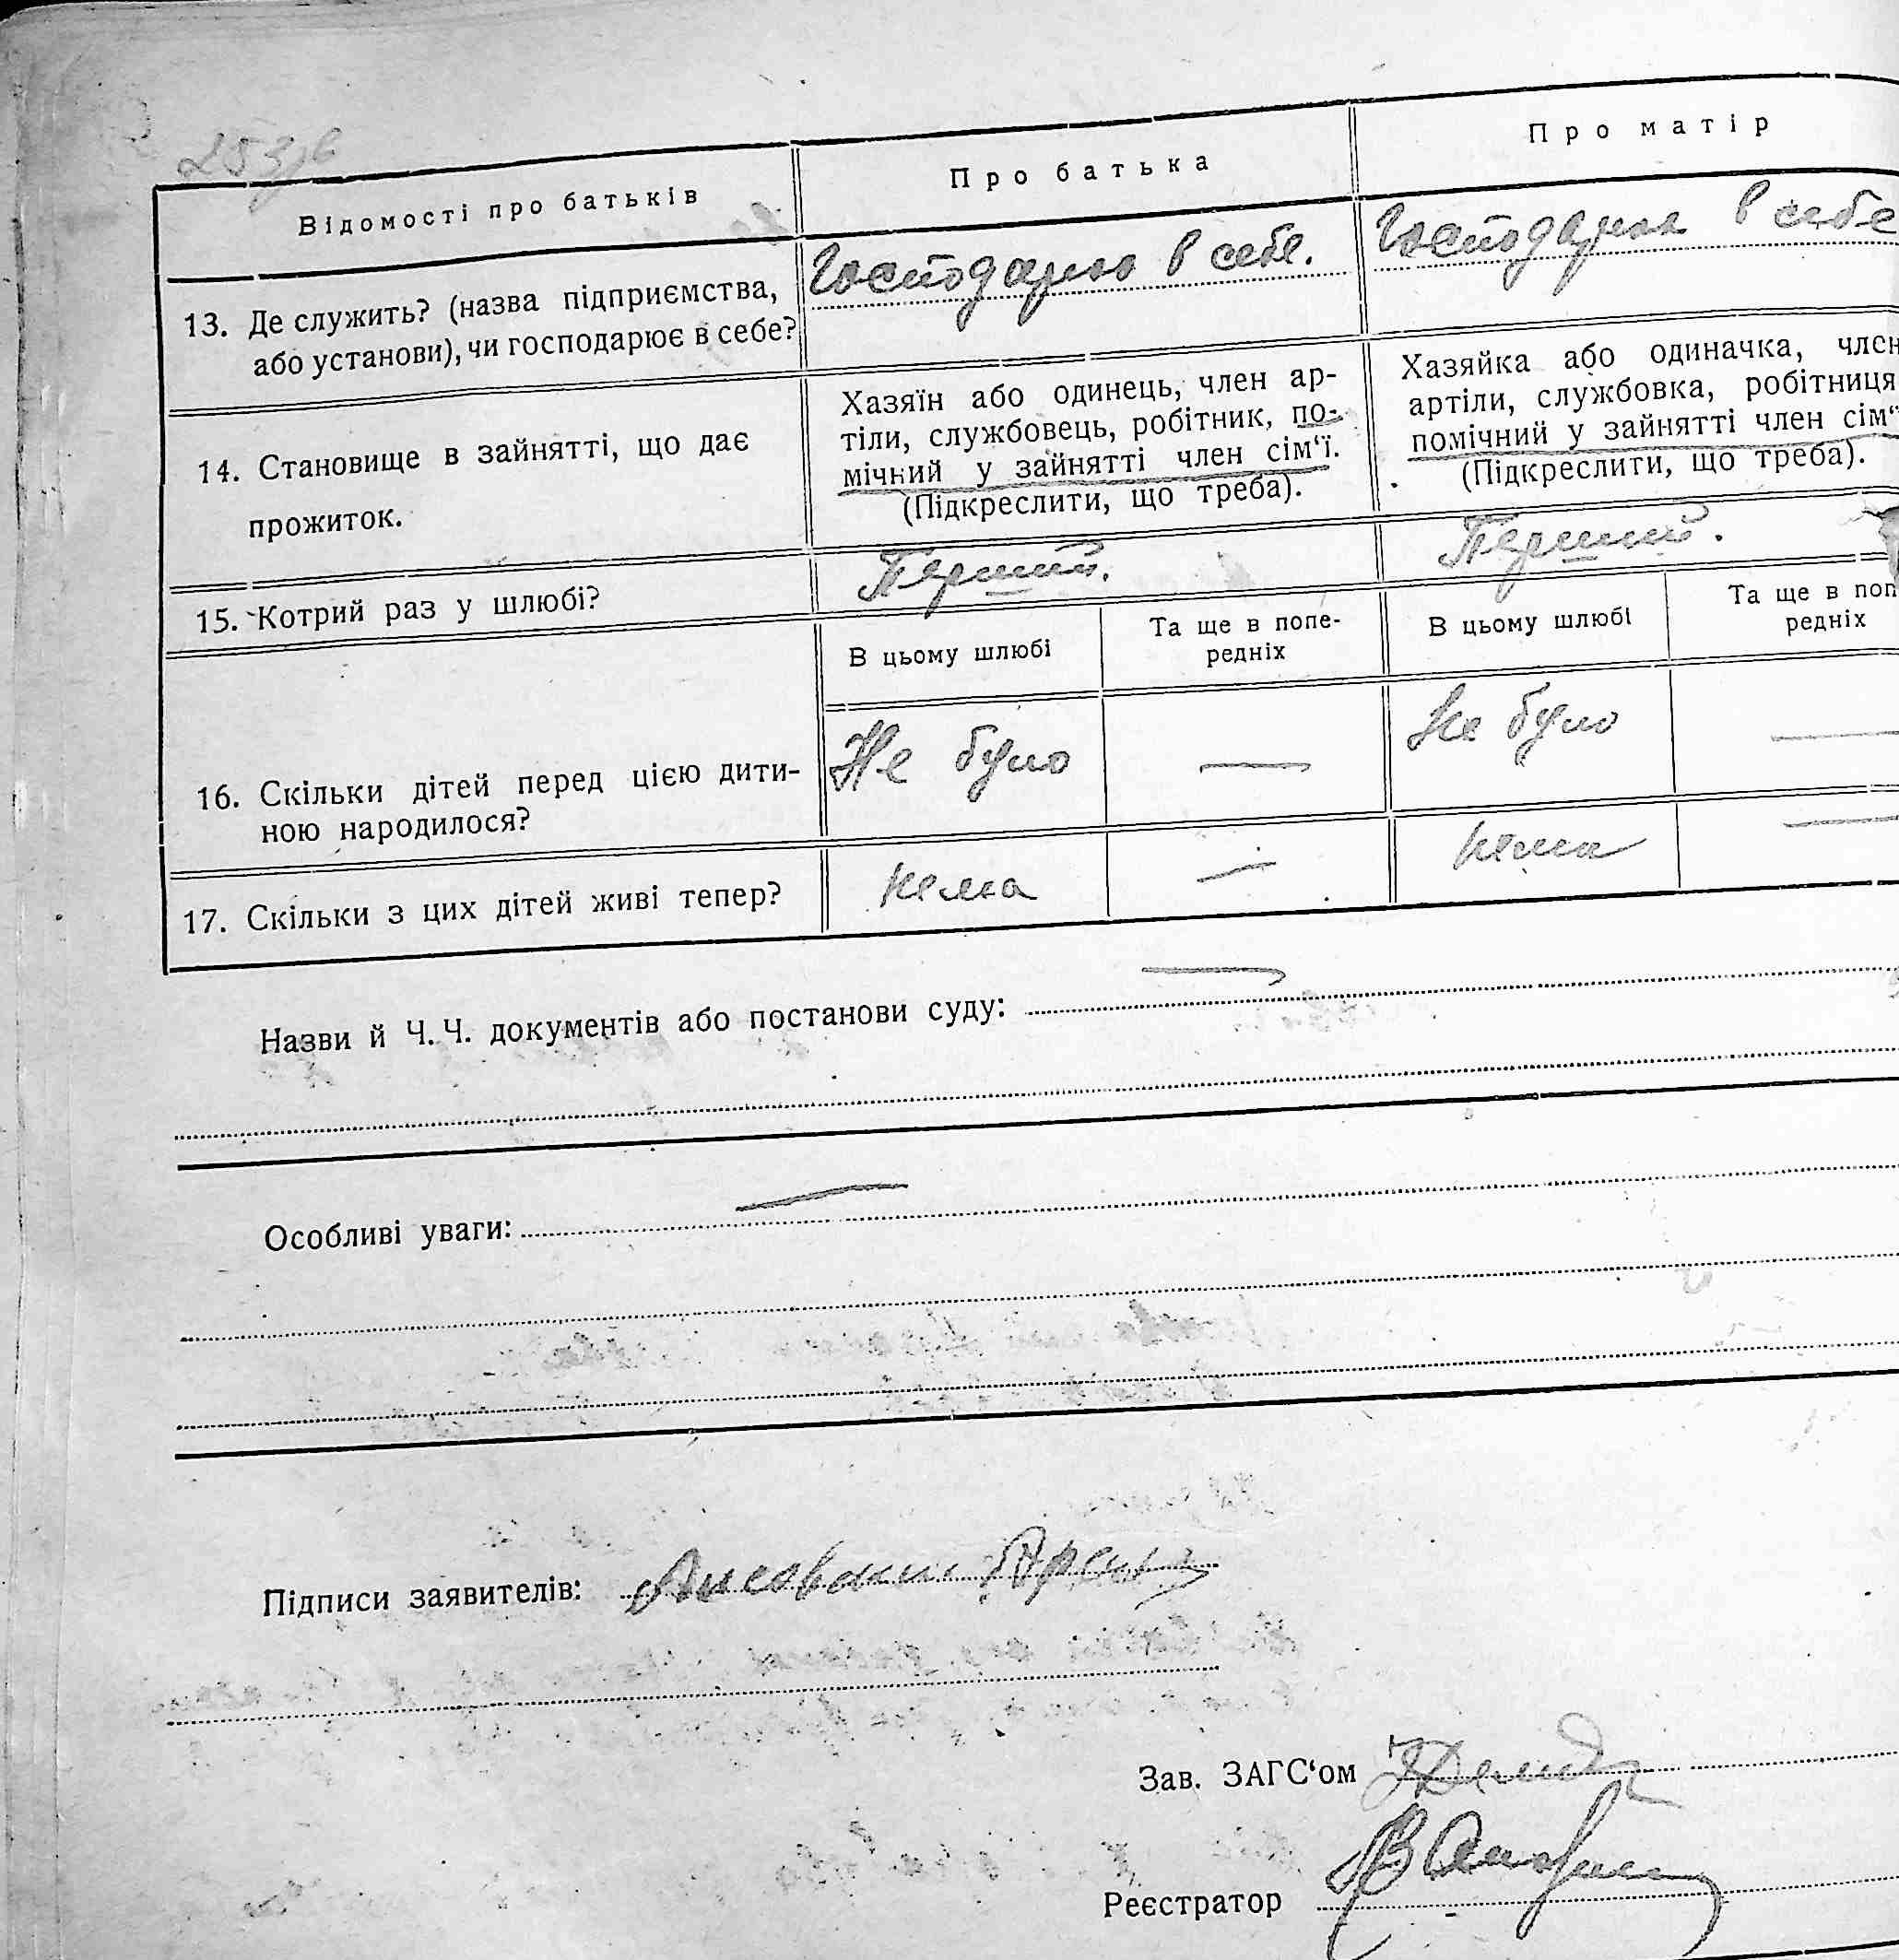 Відомості про батьків
Про батька
Про матір
13. Де служить? (назва підприємства,
або установи), чи господарює в себе?
Господарює в себе.
Господарює в себе
14. Становище в зайнятті, що дає
прожиток.
Хазяїн або одинець, член ар-
тіли, службовець, робітник, по-
мічний у зайнятті член сім‘ї.
(Підкреслити, що треба).
Хазяйка або одиначка, член
артіли, службовка, робітниця
помічний у зайнятті член сім‘
(Підкреслити, що треба).
15. Котрий раз у шлюбі?
Перший.
Перший.
В цьому шлюбі
Та ще в попе-
редніх
В цьому шлюбі
Та ще в поп
редніх
16. Скільки дітей перед цією дити-
ною народилося?
Не було
—
Не було
—
17. Скільки з цих дітей живі тепер?
нема
—
нема
—
Назви й Ч. Ч. документів або постанови суду: —
Особливі уваги: —
Підписи заявителів:
Зав. ЗАГС‘ом
Реєстратор